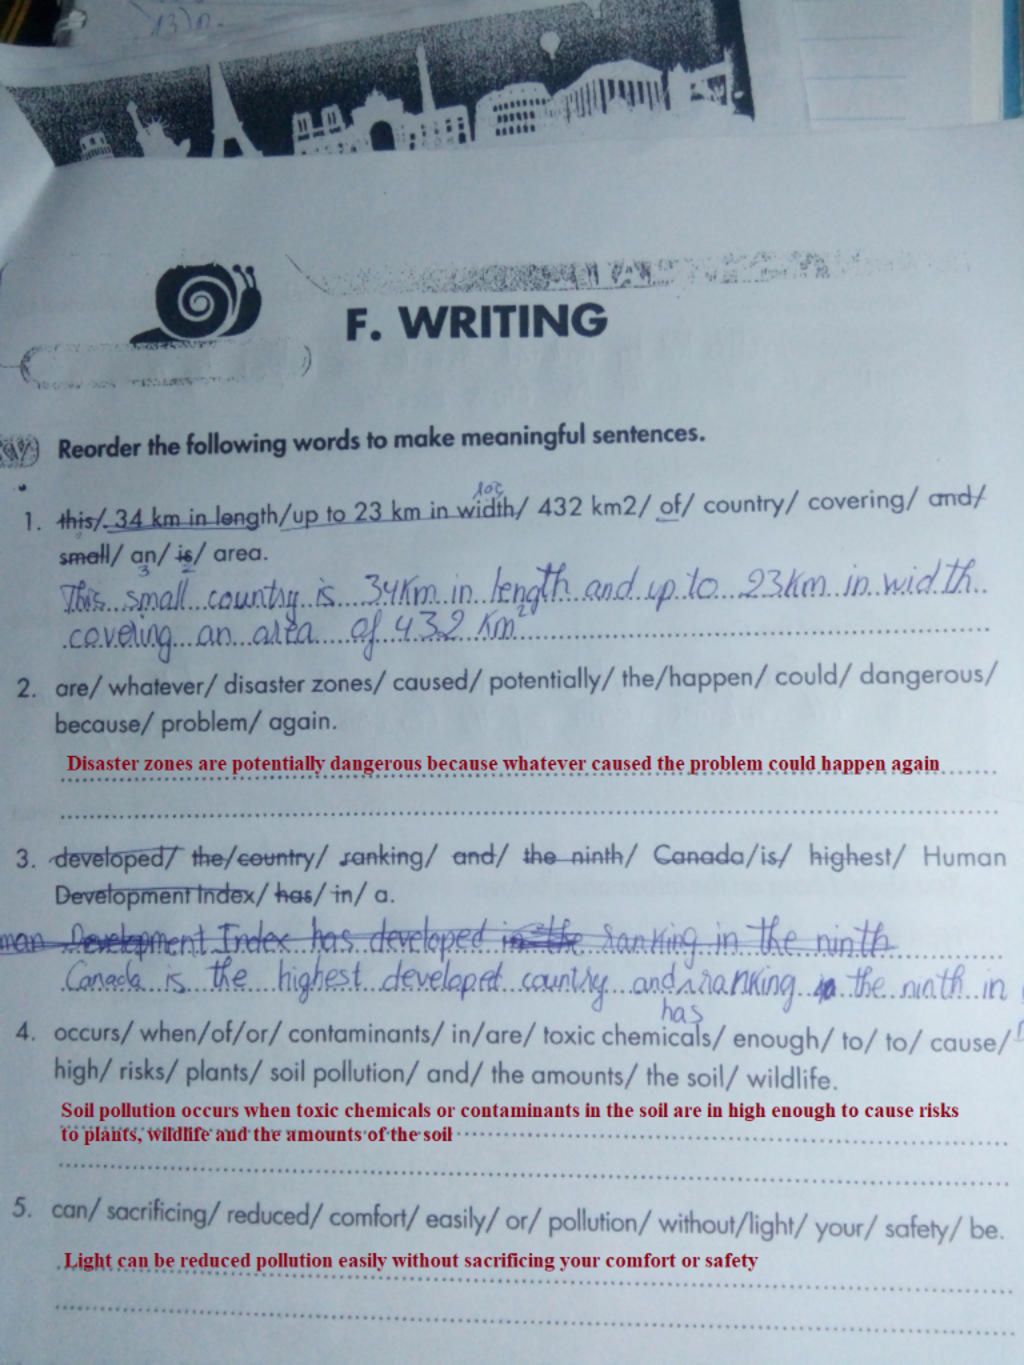 F. WRITING
Reorder the following words to make meaningful sentences.
1. this/ 34 km in length/up to 23 km in width/ 432 km2/ of/ country/ covering/ and/
small/ an/ is/ area.
3 2
This small country is 34Km in length and up to 23Km in width
covering an area of 432 Km²
2. are/ whatever/ disaster zones/ caused/ potentially/ the/happen/ could/ dangerous/
because/ problem/ again.
Disaster zones are potentially dangerous because whatever caused the problem could happen again
3. developed/ the/country/ ranking/ and/ the ninth/ Canada/is/ highest/ Human
Development Index/ has/ in/ a.
man Development Index has developed in the ranking in the ninth
Canada is the highest developed country and ranking the ninth in
has
4. occurs/ when/of/or/ contaminants/ in/are/ toxic chemicals/ enough/ to/ to/ cause/
high/ risks/ plants/ soil pollution/ and/ the amounts/ the soil/ wildlife.
Soil pollution occurs when toxic chemicals or contaminants in the soil are in high enough to cause risks
to plants, wildlife and the amounts of the soil
5. can/ sacrificing/ reduced/ comfort/ easily/ or/ pollution/ without/light/ your/ safety/ be.
Light can be reduced pollution easily without sacrificing your comfort or safety